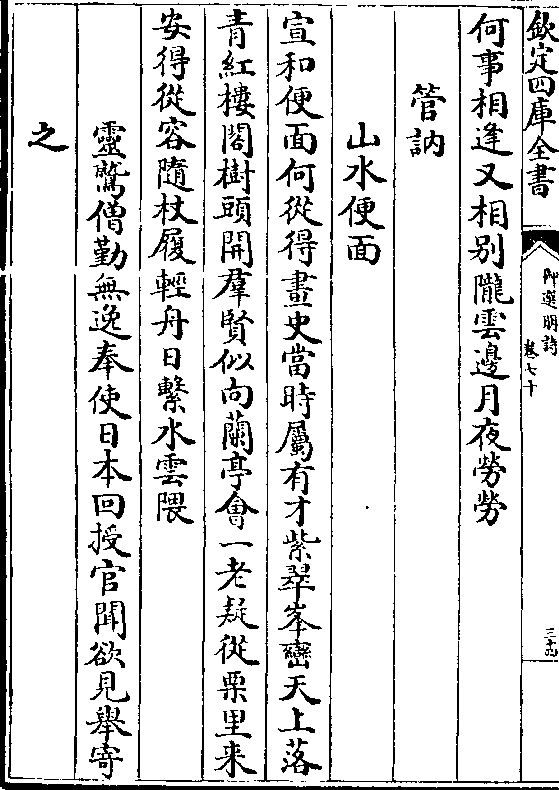 欽定四庫全書
御選明詩
卷七十
三十九
何事相逢又相别隴雲邊月夜勞勞
管訥
山水便面
宣和便面何從得畫史當時屬有才紫翠峯巒天上落
青紅樓閣樹頭開羣賢似向蘭亭會一老疑從栗里来
安得從容隨杖履輕舟日繫水雲隈
靈鷲僧勤無逸奉使日本回授官聞欲見舉寄
之